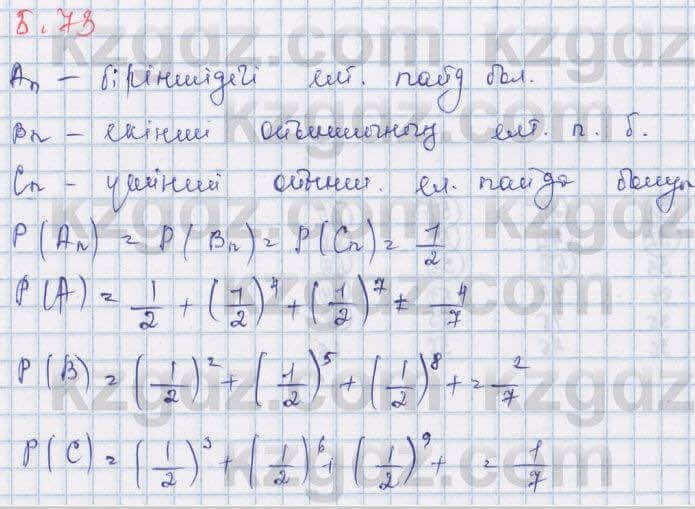 5.73
Aₙ – біріншідегі елт. пайд бол.
Bₙ – екінші ойыншының елт. п. б.
Cₙ – үшінші ойнш. ел. пайда болуы
P(Aₙ) = P(Bₙ) = P(Cₙ) = 1/2
P(A) = 1/2 + (1/2)⁴ + (1/2)⁷ + = 4/7
P(B) = (1/2)² + (1/2)⁵ + (1/2)⁸ + = 2/7
P(C) = (1/2)³ + (1/2)⁶ + (1/2)⁹ + = 1/7
kzgdz.com